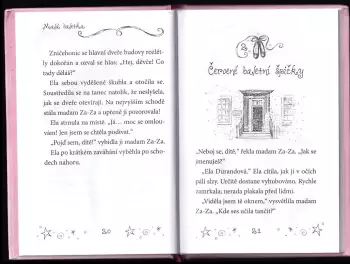 Malá baletka
Zničehonic se hlavní dveře budovy rozlétly
dokořán a ozval se hlas: „Hej, děvče! Co
tady děláš?“
Ela sebou vyděšeně škubla a otočila se.
Soustředila se na tanec natolik, že neslyšela,
jak se dveře otevírají. Na nejvyšším schodě
stála madam Za-Za a upřeně ji pozorovala!
Ela strnula na místě. „Já… moc se omlouvám!
Jen jsem se chtěla podívat.“
„Pojď sem, dítě!“ vybídla ji madam Za-Za.
Ela po krátkém zaváhání vyběhla po schodech
nahoru.
20
2
Červené baletní špičky
„Neboj se, dítě,“ řekla madam Za-Za. „Jak se
jmenuješ?“
„Ela Durandová.“ Ela cítila, jak jí v očích
pálí slzy. Určitě dostane vyhubováno. Rychle
zamrkala; nerada plakala před lidmi.
„Viděla jsem tě oknem,“ vysvětlila madam
Za-Za. „Kde ses učila tančit?“
21